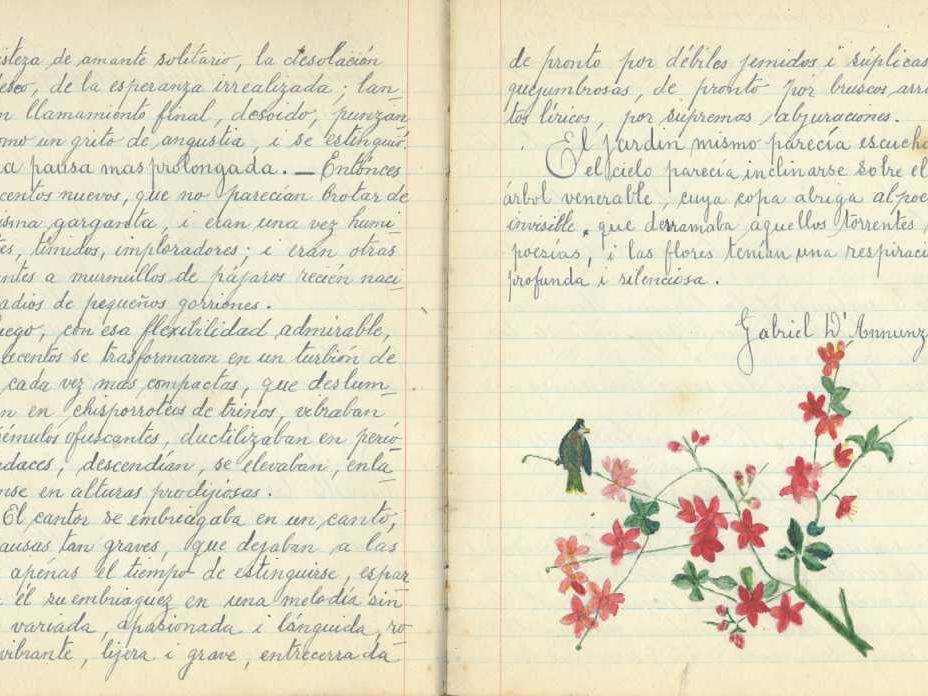 isteza de amante solitario, la desolación
eseo, de la esperanza irrealizada; lan-
n llamamiento final, desoido, punzan-
omo un grito de angustia, i se estinguió.
a pausa mas prolongada. — Entónces
centos nuevos, que no parecían brotar de
isma garganta, i eran una vez humi
es, tímidos, imploradores; i eran otras
ntes a murmullos de pájaros recién naci
adios de pequeños gorriones.
uego, con esa flexibilidad admirable,
acentos se trasformaron en un turbión de
cada vez mas compactas, que deslum
n en chisporroteos de trinos, vibraban
émulos ofuscantes, ductilizaban en perio
udaces, descendían, se elevaban, enla-
nse en alturas prodijiosas.
El cantor se embriagaba en un canto,
ausas tan graves, que dejaban a las
apénas el tiempo de estinguirse, espar
él su embriaguéz en una melodía sin
variada, apasionada i lánguida, ro
vibrante, lijera i grave, entrecerrada
de pronto por débiles jemidos i súplicas
quejumbrosas, de pronto por bruscos arra
tos líricos, por supremas abjuraciones.
El jardin mismo parecía escucha
el cielo parecía inclinarse sobre el
árbol venerable, cuya copa abriga al poe
invisible, que derramaba aquellos torrentes
poesías, i las flores tenían una respiraci
profunda i silenciosa.
Gabriel D'Annunz